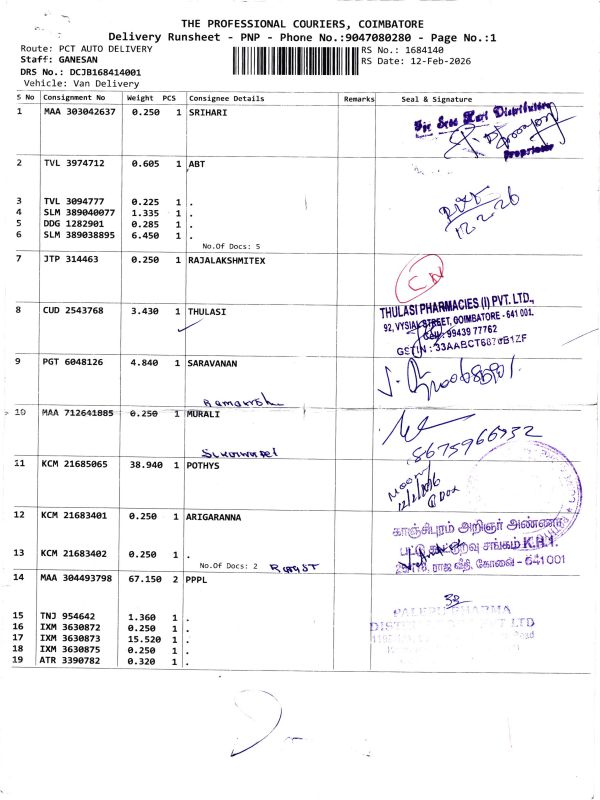 THE PROFESSIONAL COURIERS, COIMBATORE
Delivery Runsheet - PNP - Phone No.:9047080280 - Page No.:1
Route: PCT AUTO DELIVERY RS No.: 1684140
Staff: GANESAN RS Date: 12-Feb-2026
DRS No.: DCJB168414001
Vehicle: Van Delivery
S No Consignment No Weight PCS Consignee Details Remarks Seal & Signature
1 MAA 303042637 0.250 1 SRIHARI
For Sree Hari Distributors
Proprietor
2 TVL 3974712 0.605 1 ABT
3 TVL 3094777 0.225 1 .
4 SLM 389040077 1.335 1 .
5 DDG 1282901 0.285 1 .
6 SLM 389038895 6.450 1 .
12.2.26
No.Of Docs: 5
7 JTP 314463 0.250 1 RAJALAKSHMITEX
8 CUD 2543768 3.430 1 THULASI
THULASI PHARMACIES (I) PVT. LTD.,
92, VYSIAL STREET, COIMBATORE - 641 001.
Cell : 99439 77762
GSTIN : 33AABCT6876B1ZF
9 PGT 6048126 4.840 1 SARAVANAN
10 MAA 712641885 0.250 1 MURALI
8675966332
11 KCM 21685065 38.940 1 POTHYS
12 KCM 21683401 0.250 1 ARIGARANNA
காஞ்சிபுரம் அறிஞர் அண்ணா
சங்கம் K.H.1.
ராஜ வீதி, கோவை - 641 001
13 KCM 21683402 0.250 1 .
No.Of Docs: 2
14 MAA 304493798 67.150 2 PPPL
15 TNJ 954642 1.360 1 .
16 IXM 3630872 0.250 1 .
17 IXM 3630873 15.520 1 .
18 IXM 3630875 0.250 1 .
19 ATR 3390782 0.320 1 .
PHARMA
LTD